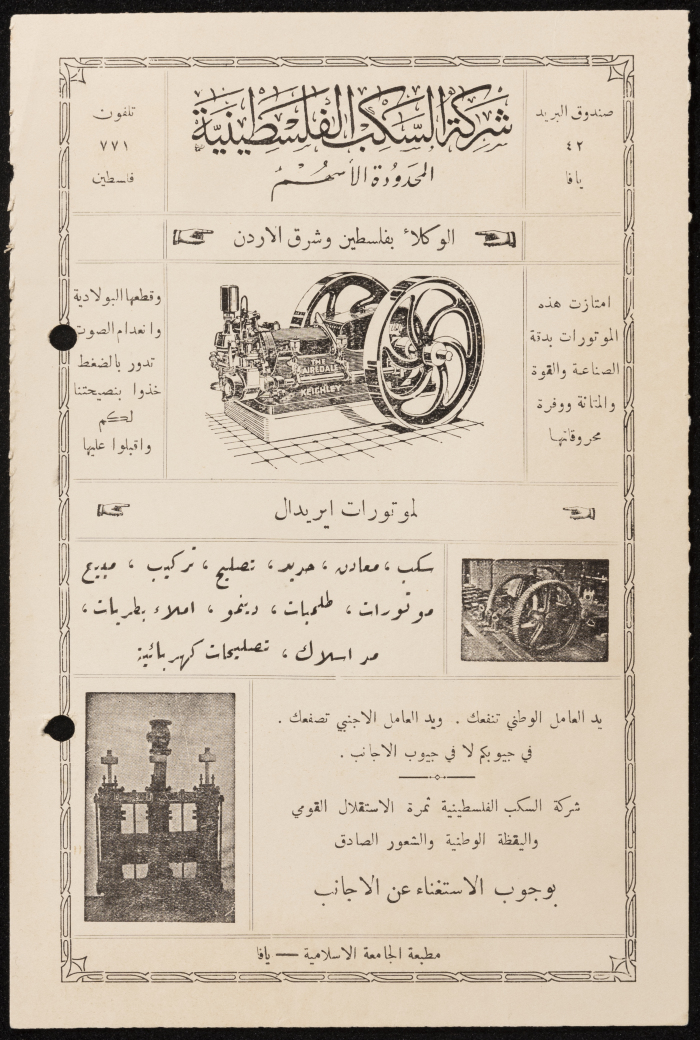 صندوق البريد
٤٢
يافا
شركة السكب الفلسطينية
المحدودة الأسهم
تلفون
٧٧١
فلسطين
الوكلاء بفلسطين وشرق الاردن
امتازت هذه
الموتورات بدقة
الصناعة والقوة
والمتانة ووفرة
محروقاتها
THE
AIREDALE
KEIGHLEY
وقطعها البولادية
وانعدام الصوت
تدور بالضغط
خذوا بنصيحتنا
لكم
واقبلوا عليها
لموتورات ايريدال
سكب ، معادن ، حديد ، تصليح ، تركيب ، مبيع
موتورات ، طلمبات ، دينمو ، املاء بطريات ،
مد اسلاك ، تصليحات كهربائية
يد العامل الوطني تنفعك . ويد العامل الاجنبي تصفعك .
في جيوبكم لا في جيوب الاجانب .
شركة السكب الفلسطينية ثمرة الاستقلال القومي
واليقظة الوطنية والشعور الصادق
بوجوب الاستغناء عن الاجانب
مطبعة الجامعة الاسلامية — يافا